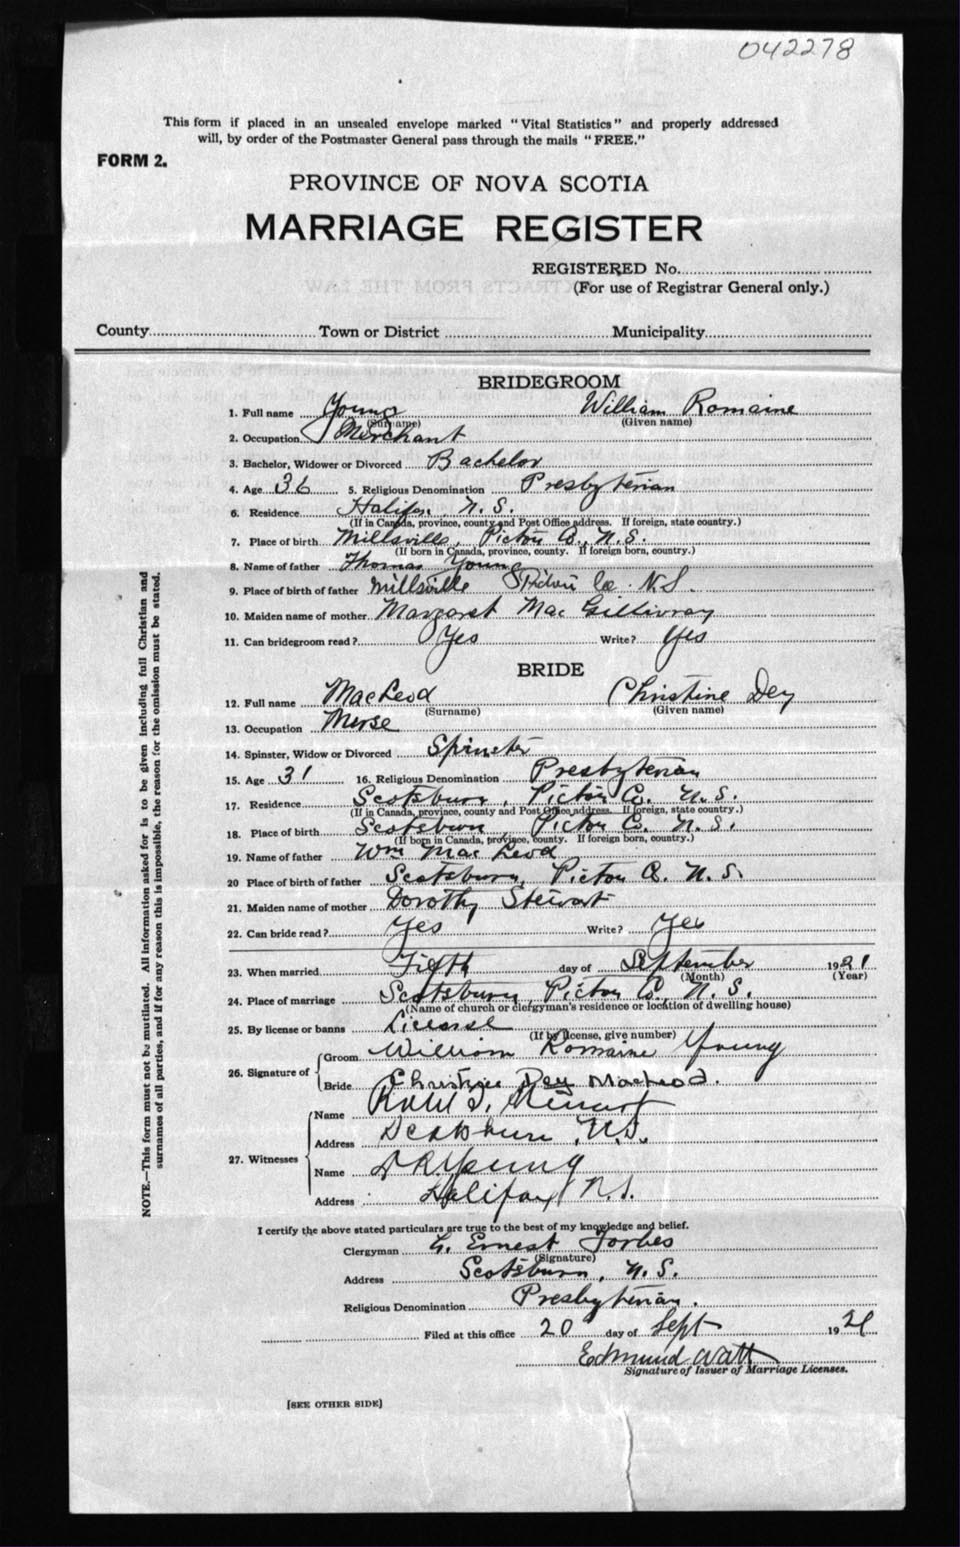 042278
This form if placed in an unsealed envelope marked "Vital Statistics" and properly addressed
will, by order of the Postmaster General pass through the mails "FREE."
FORM 2.
PROVINCE OF NOVA SCOTIA
MARRIAGE REGISTER
REGISTERED No.
(For use of Registrar General only.)
County Town or District Municipality
BRIDEGROOM
1. Full name Young William Romaine
(Surname) (Given name)
2. Occupation Merchant
3. Bachelor, Widower or Divorced Bachelor
4. Age 36 5. Religious Denomination Presbyterian
6. Residence Halifax N.S.
(If in Canada, province, county and Post Office address. If foreign, state country.)
7. Place of birth Millsville, Pictou Co., N.S.
(If born in Canada, province, county. If foreign born, country.)
8. Name of father Thomas Young
9. Place of birth of father Millsville Pictou Co. N.S.
10. Maiden name of mother Margaret MacGillivray
11. Can bridegroom read? Yes Write? Yes
BRIDE
12. Full name MacLeod Christine Dey
(Surname) (Given name)
13. Occupation Nurse
14. Spinster, Widow or Divorced Spinster
15. Age 31 16. Religious Denomination Presbyterian
17. Residence Scotsburn, Pictou Co. N.S.
(If in Canada, province, county and Post Office address. If foreign, state country.)
18. Place of birth Scotsburn Pictou Co. N.S.
(If born in Canada, province, county. If foreign born, country.)
19. Name of father Wm MacLeod
20 Place of birth of father Scotsburn, Pictou Co. N.S.
21. Maiden name of mother Dorothy Stewart
22. Can bride read? Yes Write? Yes
23. When married Fifth day of September 1921
(Month) (Year)
24. Place of marriage Scotsburn, Pictou Co., N.S.
(Name of church or clergyman's residence or location of dwelling house)
25. By license or banns License
(If by license, give number)
26. Signature of Groom William Romaine Young
Bride Christine Dey MacLeod.
27. Witnesses Name Stewart
Address Scotsburn, N.S.
Name Young
Address Halifax N.S.
I certify the above stated particulars are true to the best of my knowledge and belief.
Clergyman G. Ernest Forbes
(Signature)
Address Scotsburn, N.S.
Religious Denomination Presbyterian.
Filed at this office 20 day of Sept 1921
Edmund Watt
Signature of Issuer of Marriage Licenses.
[SEE OTHER SIDE]
NOTE.—This form must not be mutilated. All information asked for is to be given including full Christian and
surnames of all parties, and if for any reason this is impossible, the reason for the omission must be stated.